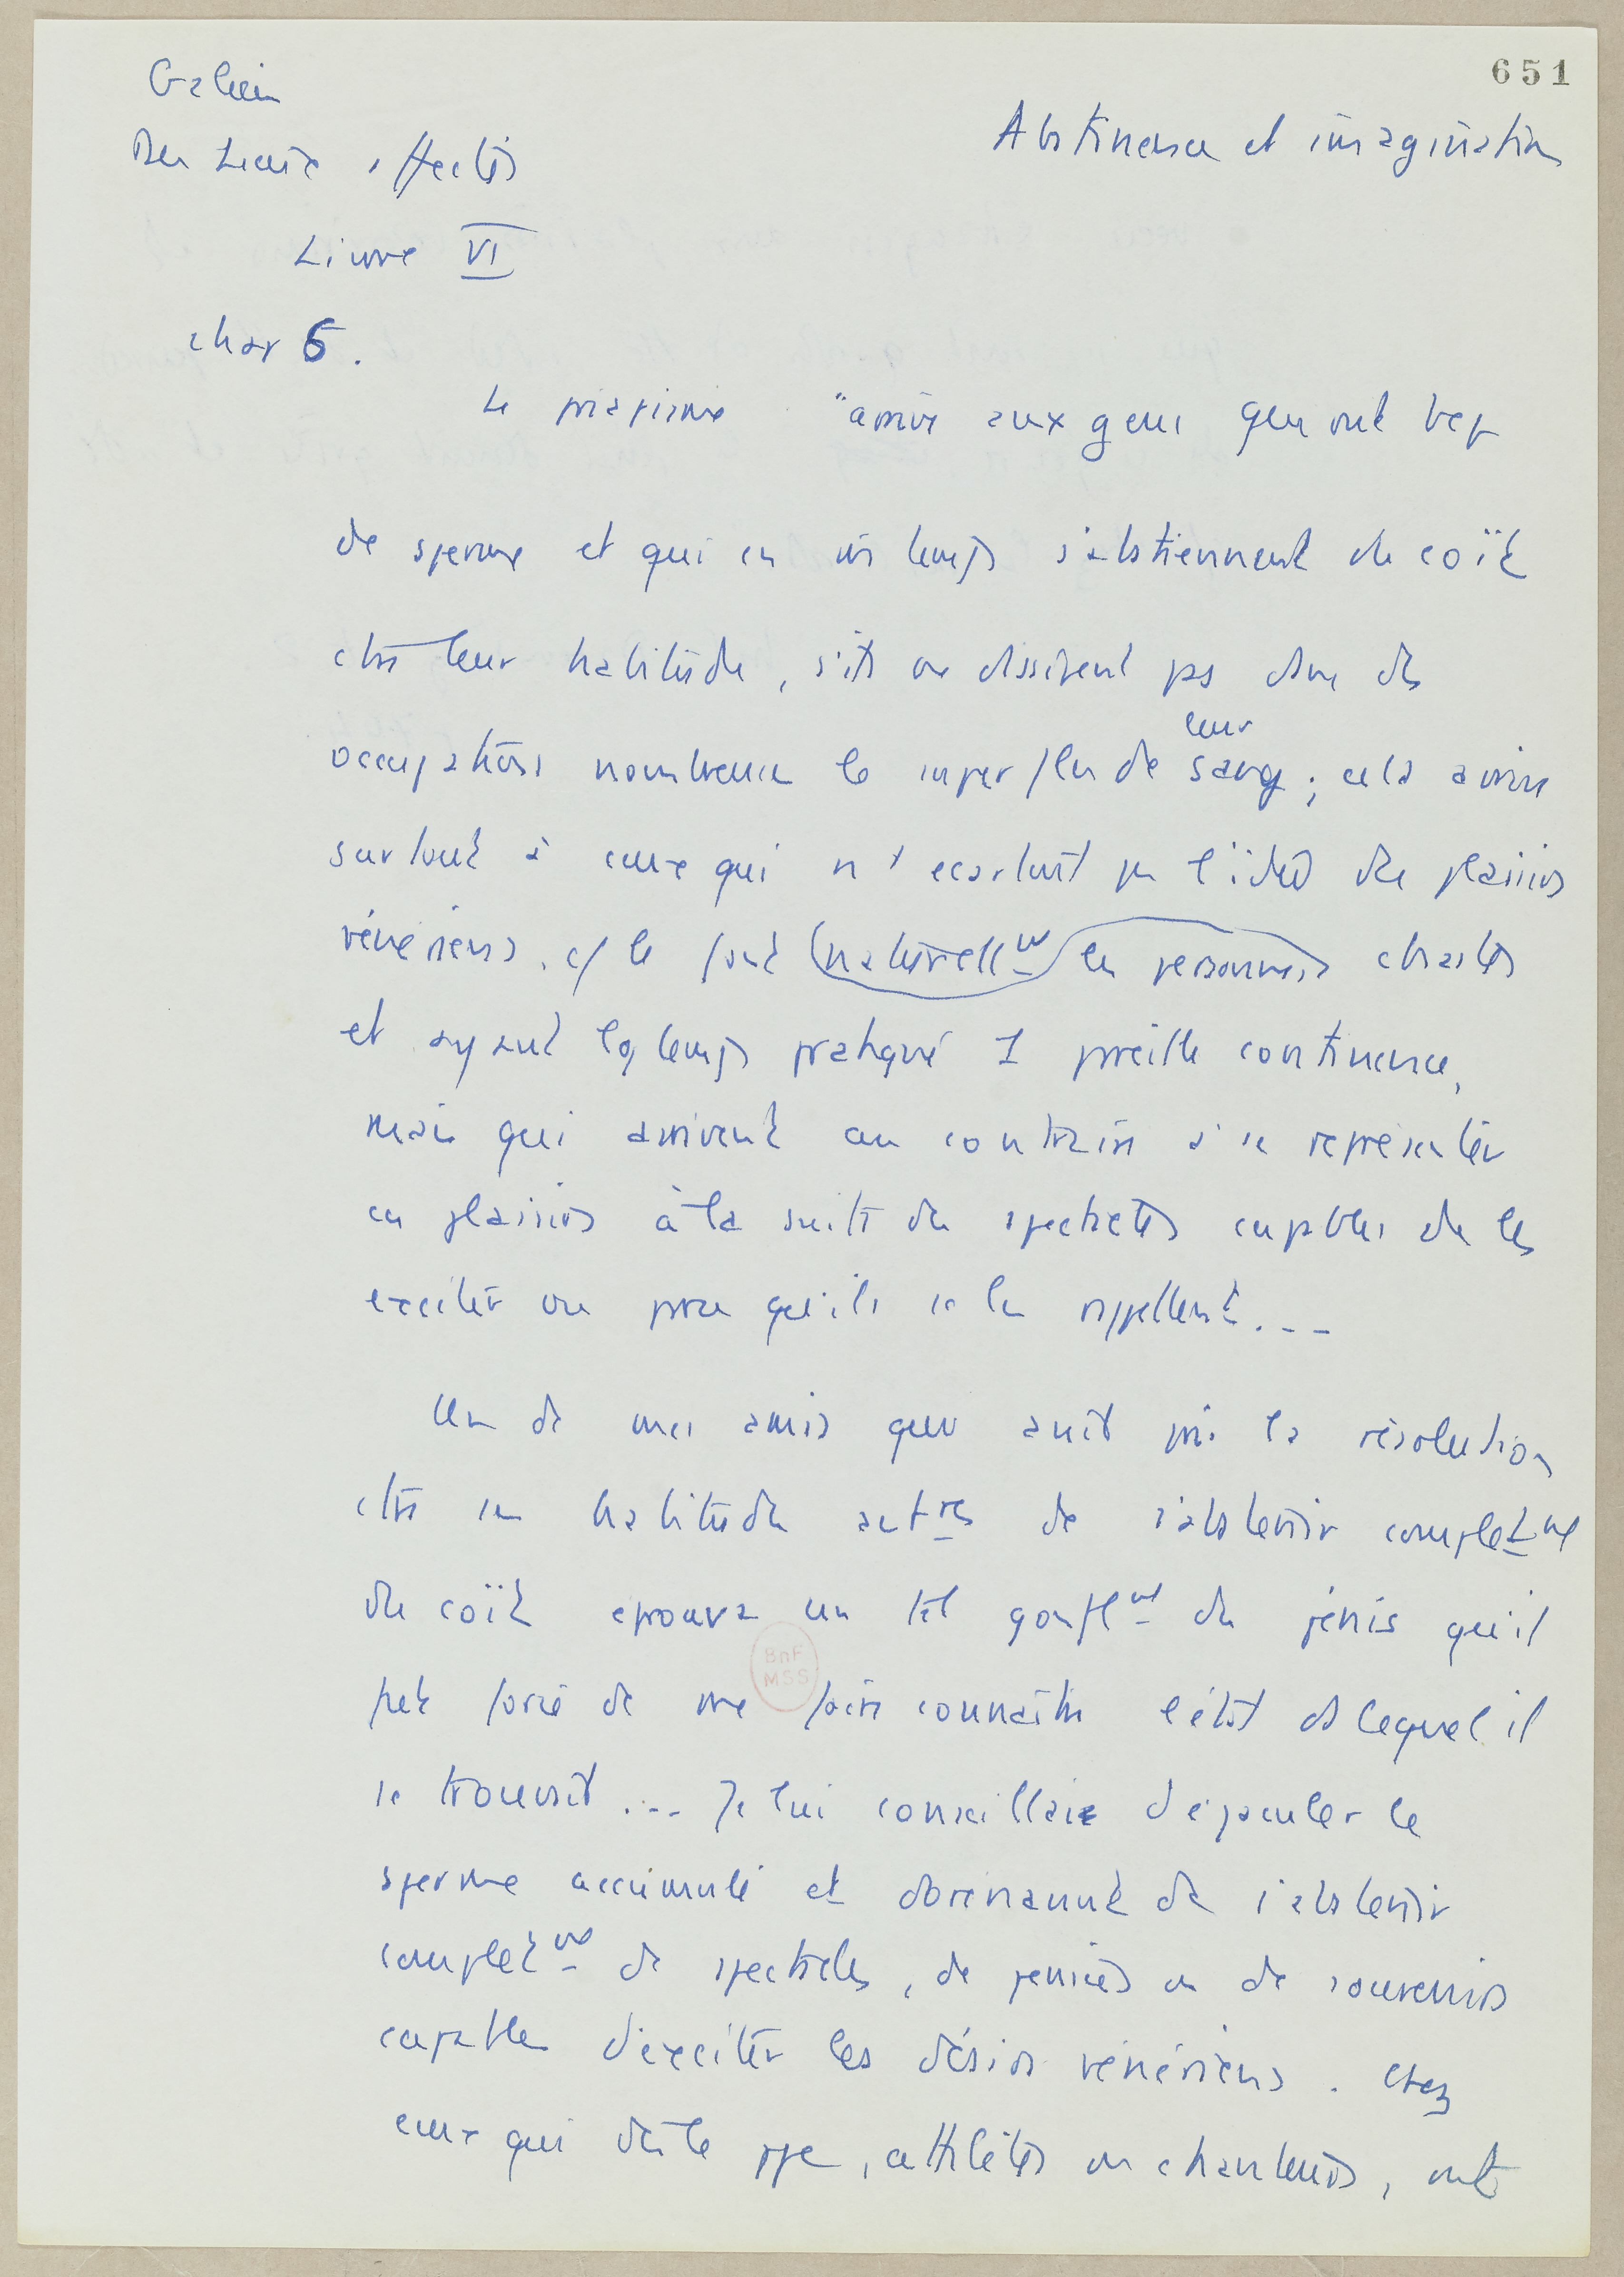 651
Galien
Des Lieux affectés
Livre VI
chap 6.
Abstinence et imagination
Le priapisme "arrive aux gens qui ont bcp
de sperme et qui en m temps s'abstiennent du coït
ctre leur habitude, s'ils ne dissipent pas dans des
occupations nombreuses le superflu de leur sang ; cela arrive
surtout à ceux qui n'écartent pas l'idée des plaisirs
vénériens, c/ le font naturellmt les personnes chastes
et ayant lg temps pratiqué 1 pareille continence,
mais qui arrivent au contraire à se représenter
ces plaisirs à la suite de spectacles capables de les
exciter ou parce qu'ils se les rappellent...
Un de mes amis qui avait pris la résolution
ctre ses habitudes antres de s'abstenir completmt
du coït éprouva un tel gonflmt du pénis qu'il
fut forcé de me faire connaître l'état ds lequel il
se trouvait ... Je lui conseillai d'éjaculer le
sperme accumulé et dorénavant de s'abstenir
completmt de spectacles, de pensées ou de souvenirs
capables d'exciter les désirs vénériens. Chez
ceux qui dès le ppe, athlètes ou chanteurs, ont
BnF
MSS